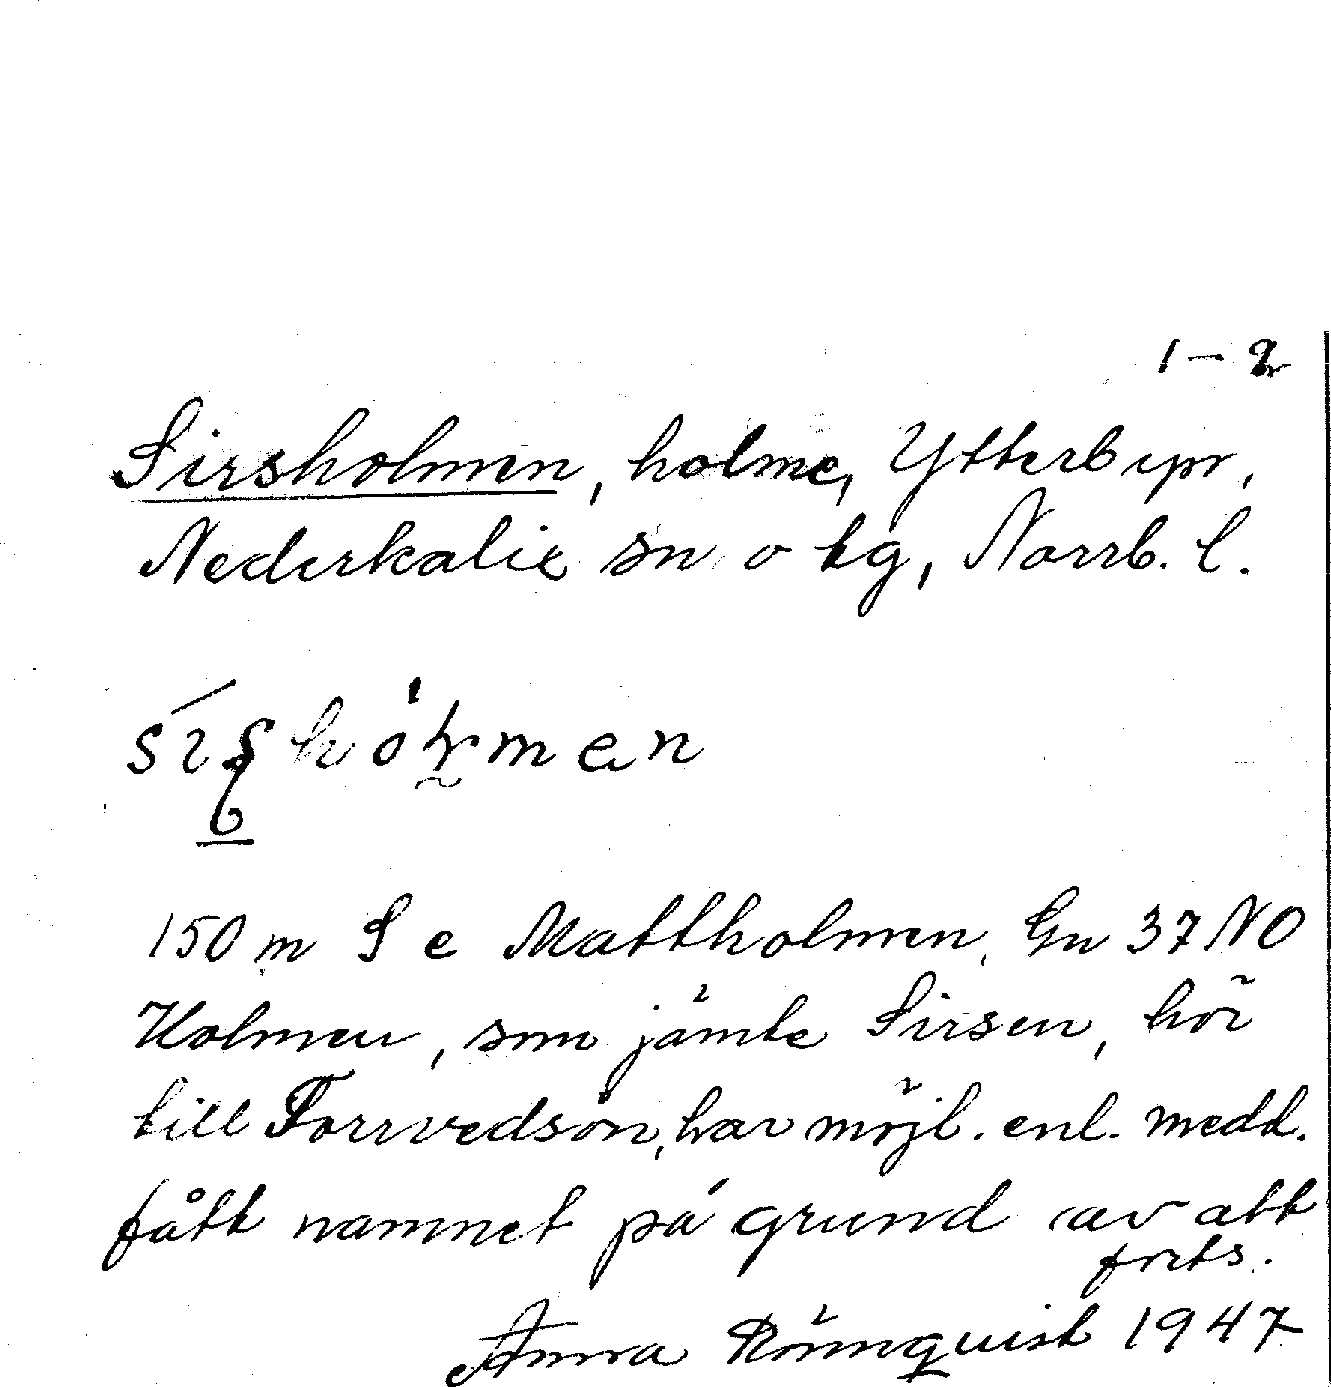 1 - 2
Sirsholmen, holme, Ytterbyn,
Nederkalix sn o tg, Norrb. l.
150 m S e Mattholmen. Gn 37 NO
Holmen, som jämte Sirsen, hör
till Torrvedsön, har möjl. enl. medd.
fått namnet på grund av att
forts.
Anna Rönnquist 1947